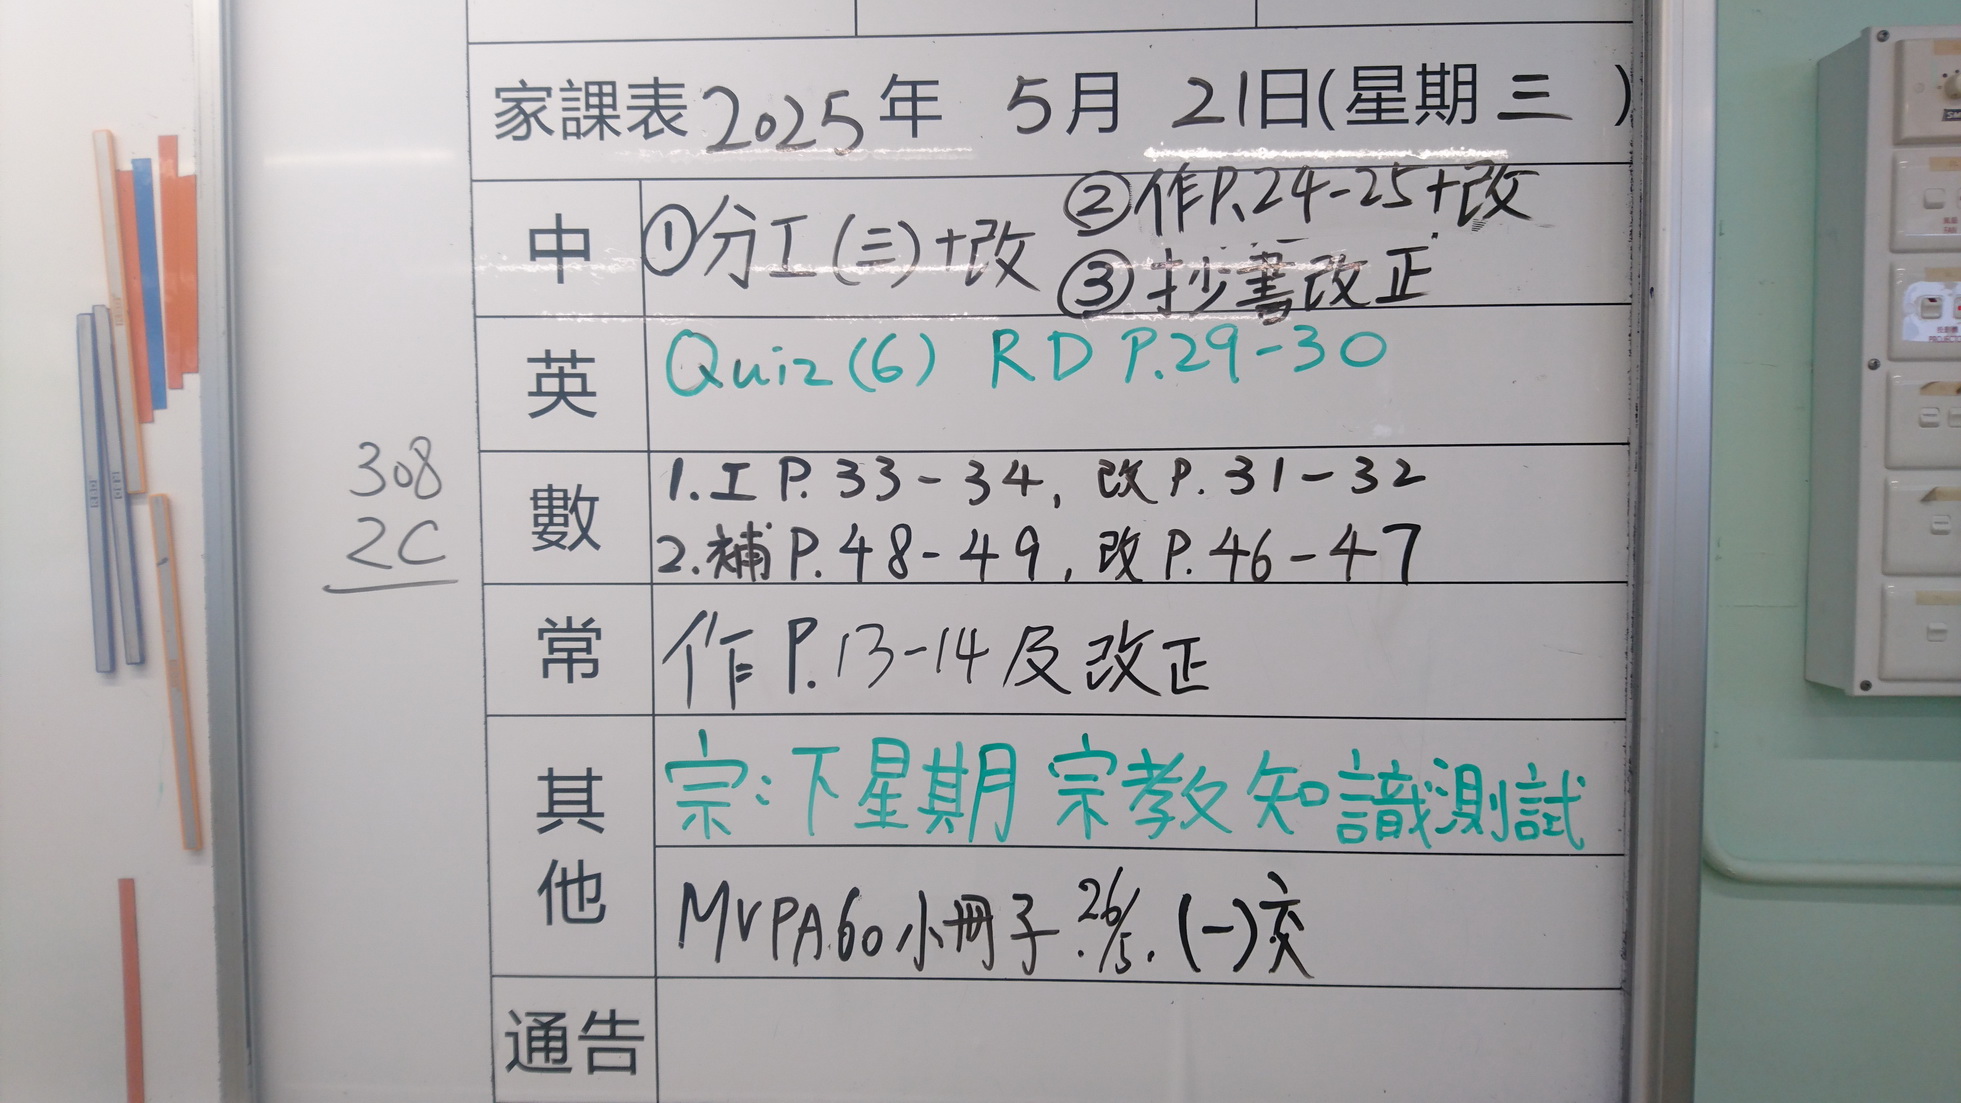 家課表 2025年 5月 21日(星期三)
中 ①分工(三)+改 ②作P.24-25+改
③抄書改正
英 Quiz(6) RD P.29-30
308
2C
數 1.工 P.33-34, 改 P.31-32
2.補 P.48-49, 改 P.46-47
常 作 P.13-14 及 改正
其他 宗:下星期 宗教知識測試
MVPA60 小冊子 26/5.(一)交
通告